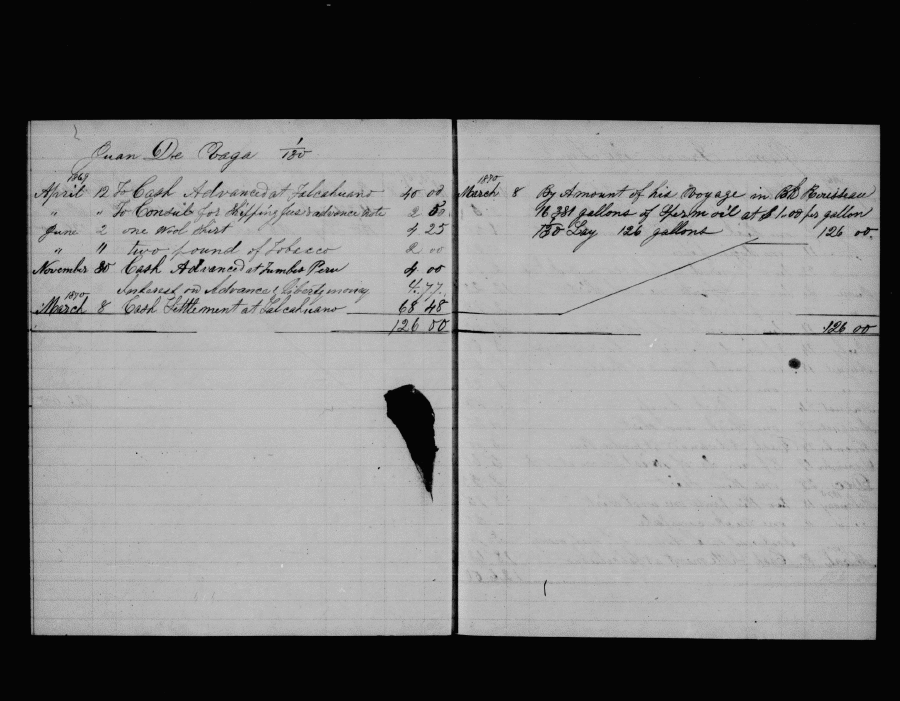 Juan De Vaga 1/130
1869
April 12 To Cash Advanced at Talcahuano 40 00
" " To Consul for Shipping fees & advance Note 2 50
June 2 one Wool Shirt 4 25
" " two pound of Tobacco 2 00
November 30 Cash Advanced at Tumbes Peru 4 00
Interest on Advance & liberty money 4.77
1870
March 8 Cash Settlement at Talcahuano 68 48
126 00
1870
March 8 By Amount of his Voyage in Bk
16 381 gallons of Sperm oil at $1.00 per gallon
130 Lay 126 gallons 126 00
126 00